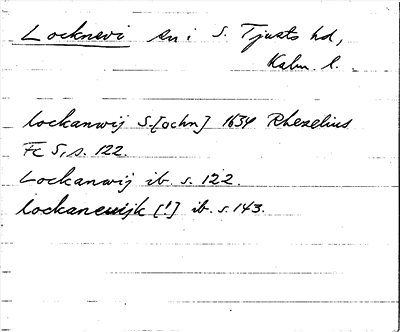 Locknevi sn i S. Tjusts hd,
Kalm. l.
Lockanwij S.[ochn] 1634 Rhezelius
Fc 5, s. 122.
Lockanwij ib. s. 122.
Lockanewijk [!] ib. s. 143.